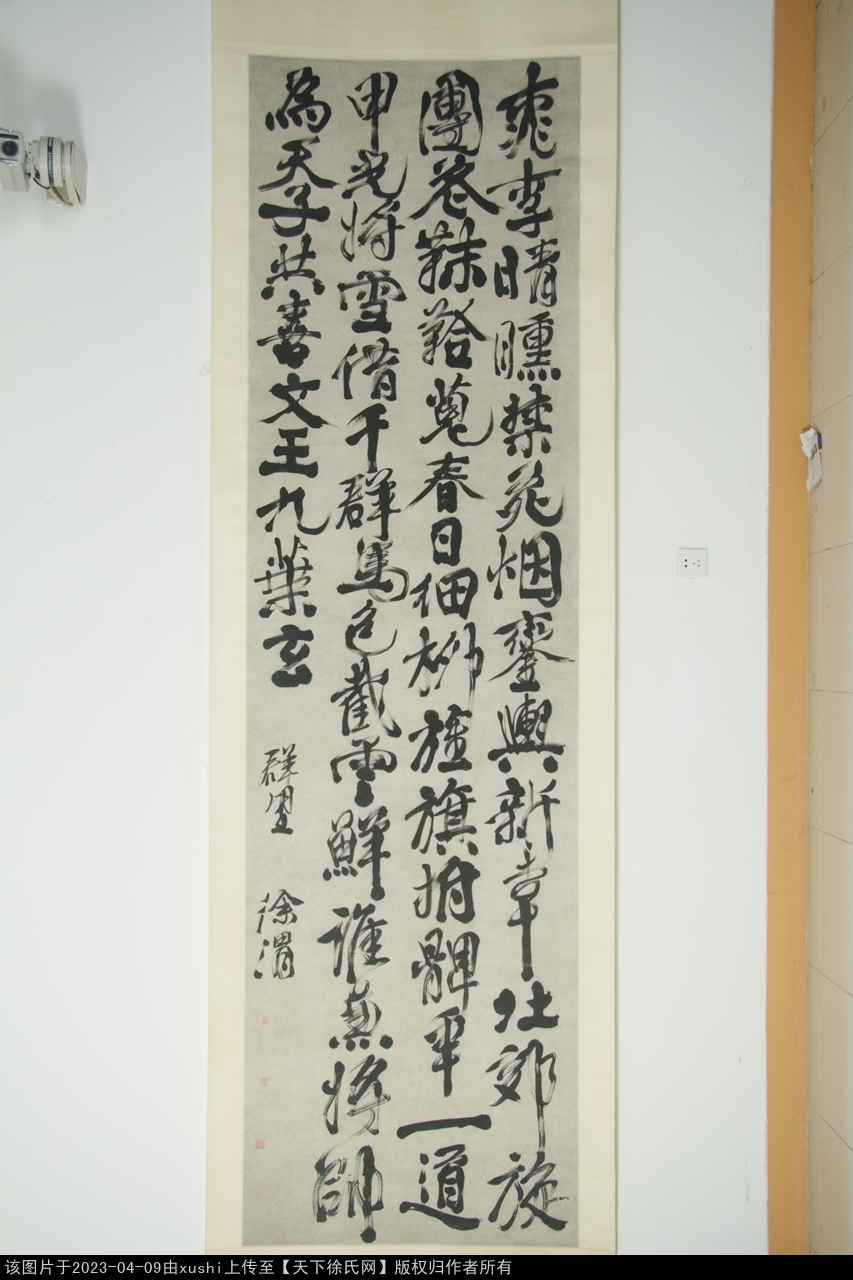 李晴曛禁苑烟鑾輿新幸北郊旋
團花靺鞨蒐春日細柳旌旗拊髀年一道
甲光將雪借千群馬色截雲鮮誰兼將帥
為天子共喜文王九葉玄
徐渭
该图片于2023-04-09由xushi上传至【天下徐氏网】版权归作者所有